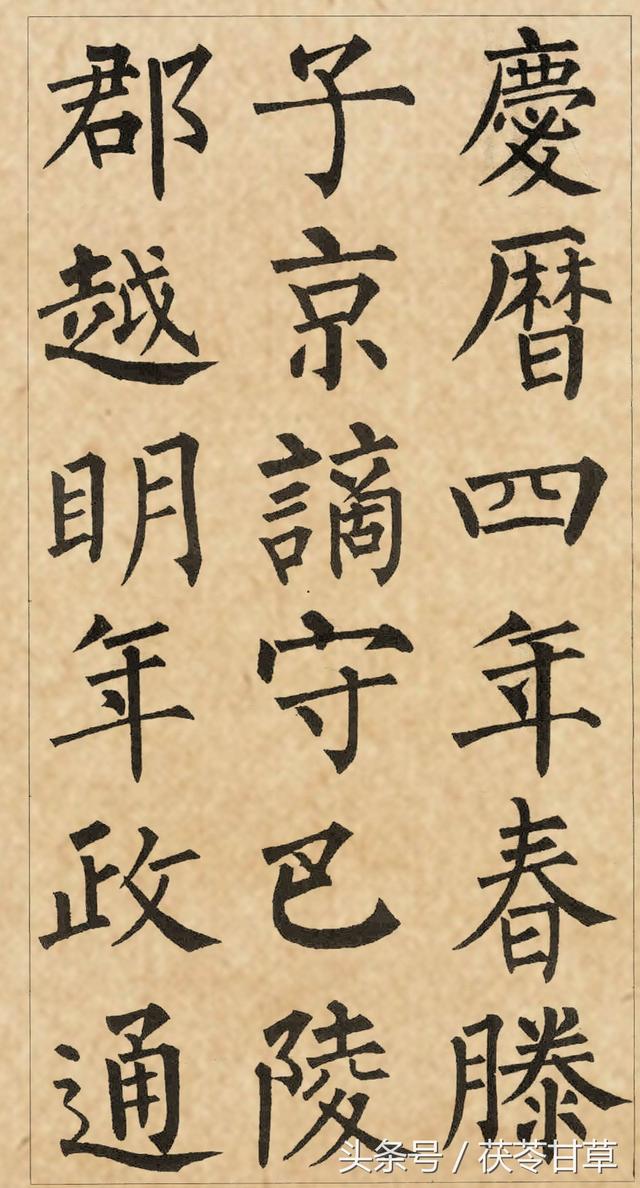 慶曆四年春滕
子京謫守巴陵
郡越明年政通
头条号 / 茯苓甘草